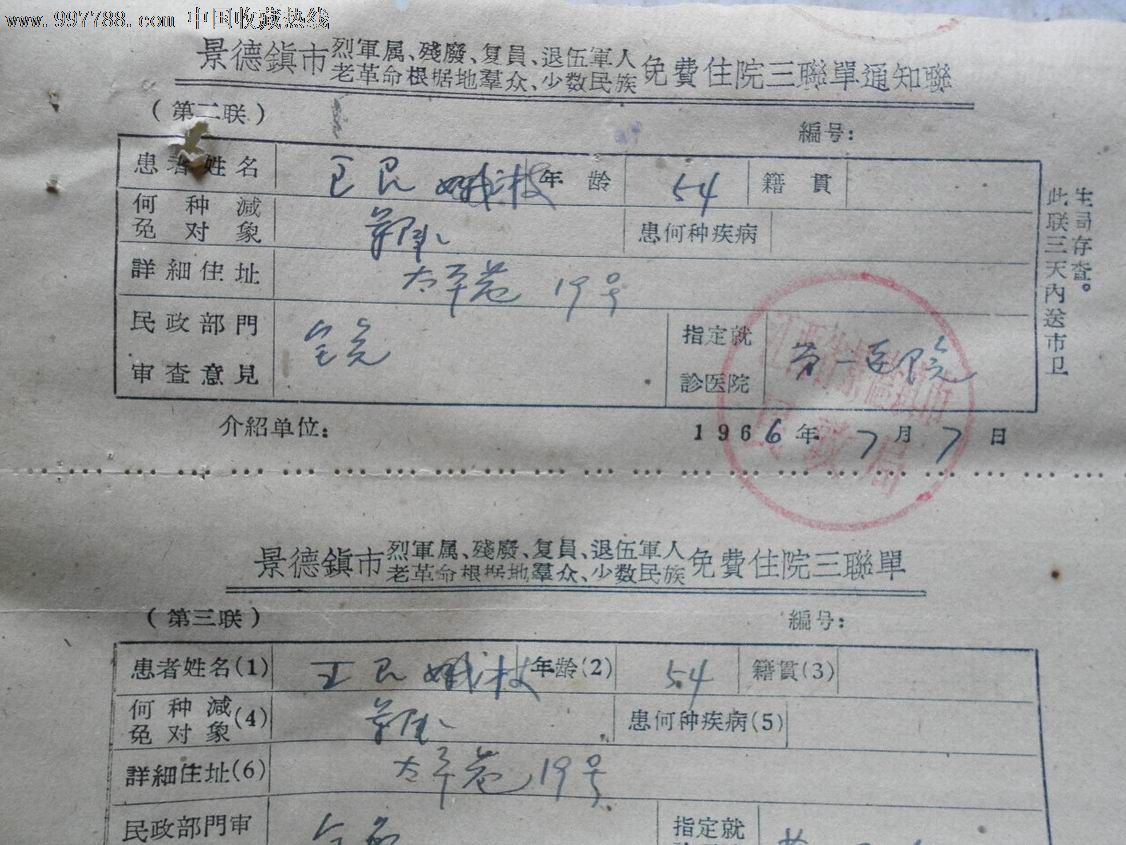 www.997788.com 中国收藏热线
景德鎮市烈軍属、殘廢、复員、退伍軍人
老革命根据地羣众、少数民族免費住院三聯單通知聯
（第二联）
編号：
患者姓名 王 年龄 54 籍貫
何种減免对象 患何种疾病
詳細住址 太平巷 19号
民政部門審查意見 全免 指定就診医院 第一医院
生局存查。
此联三天內送市卫
江西省景德鎮市
民政局
介紹单位： 1966年7月7日
景德鎮市烈軍属、殘廢、复員、退伍軍人
老革命根据地羣众、少数民族免費住院三聯單
（第三联）
編号：
患者姓名(1) 王 年龄(2) 54 籍貫(3)
何种減免对象(4) 患何种疾病(5)
詳細住址(6) 太平巷 19号
民政部門审 指定就